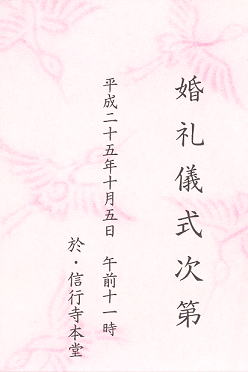 婚礼儀式次第
平成二十五年十月五日　午前十一時
於・信行寺本堂